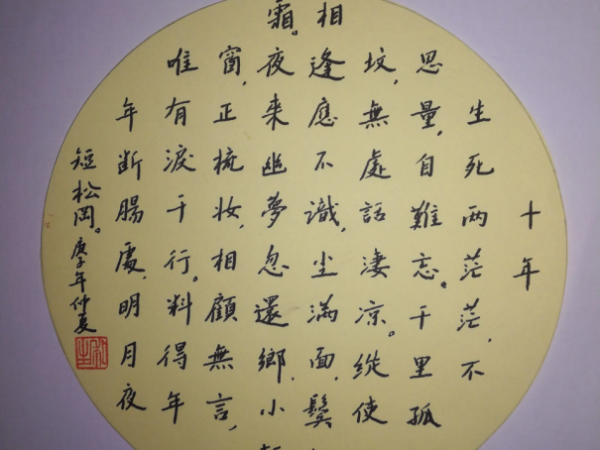 十年
生死两茫茫，不
思量，自難忘。千里孤
坟，無處話凄凉。縱使
相逢應不識，尘滿面，鬓
霜。夜来幽夢忽還鄉，小
窗，正梳妆，相顧無言，
唯有淚千行。料得年
年断腸處，明月夜
短松岡。庚子年仲夏